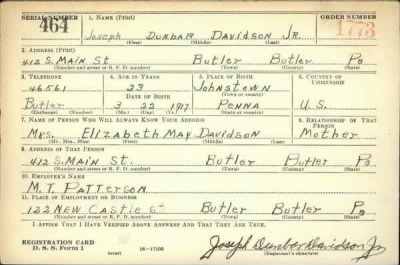 SERIAL NUMBER 1. NAME (Print) ORDER NUMBER
464 Joseph DUNBAR DAVIDSON JR. 1773
(First) (Middle) (Last)
2. ADDRESS (Print)
412 S. MAIN St Butler Butler Pa
(Number and street or R. F. D. number) (Town) (County) (State)
3. TELEPHONE 4. AGE IN YEARS 5. PLACE OF BIRTH 6. COUNTRY OF CITIZENSHIP
46561 23 Johnstown
DATE OF BIRTH (Town or county)
Butler 3 22 1917 PENNA U.S.
(Exchange) (Number) (Mo.) (Day) (Yr.) (State or country)
7. NAME OF PERSON WHO WILL ALWAYS KNOW YOUR ADDRESS 8. RELATIONSHIP OF THAT PERSON
Mrs. Elizabeth May Davidson Mother
(Mr., Mrs., Miss) (First) (Middle) (Last)
9. ADDRESS OF THAT PERSON
412 S. MAIN St. Butler Butler Pa
(Number and street or R. F. D. number) (Town) (County) (State)
10. EMPLOYER'S NAME
M.T. PATTERSON
11. PLACE OF EMPLOYMENT OR BUSINESS
122 NEW Castle St Butler Butler Pa
(Number and street or R. F. D. number) (Town) (County) (State)
I AFFIRM THAT I HAVE VERIFIED ABOVE ANSWERS AND THAT THEY ARE TRUE.
REGISTRATION CARD
D. S. S. Form 1 (over) 16—17105 Joseph Dunbar Davidson Jr
(Registrant's signature)